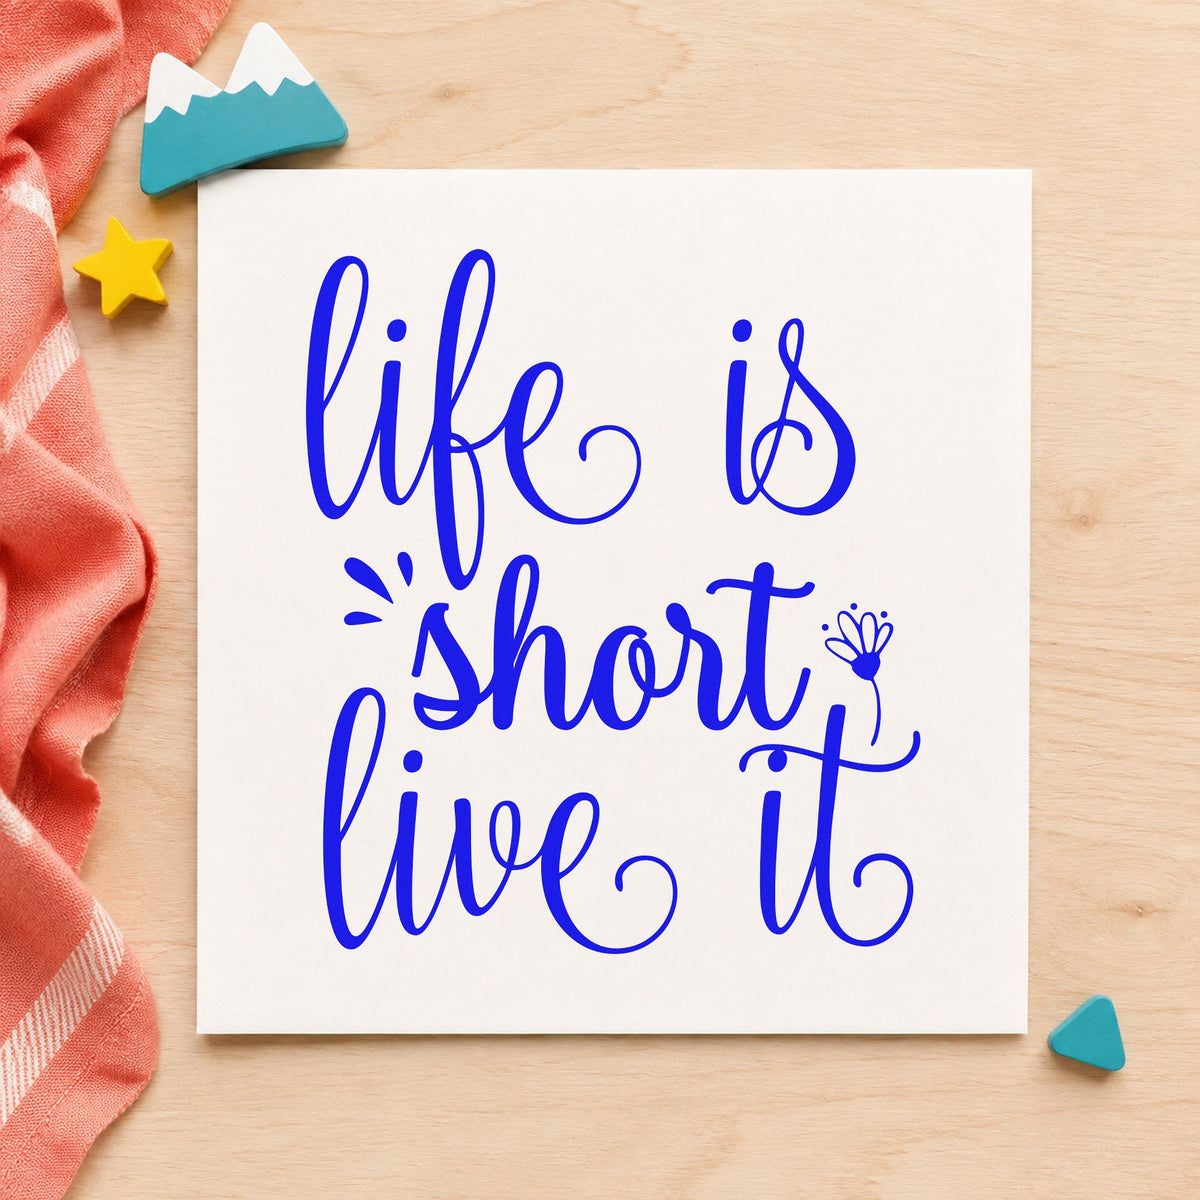 life is
short
live it